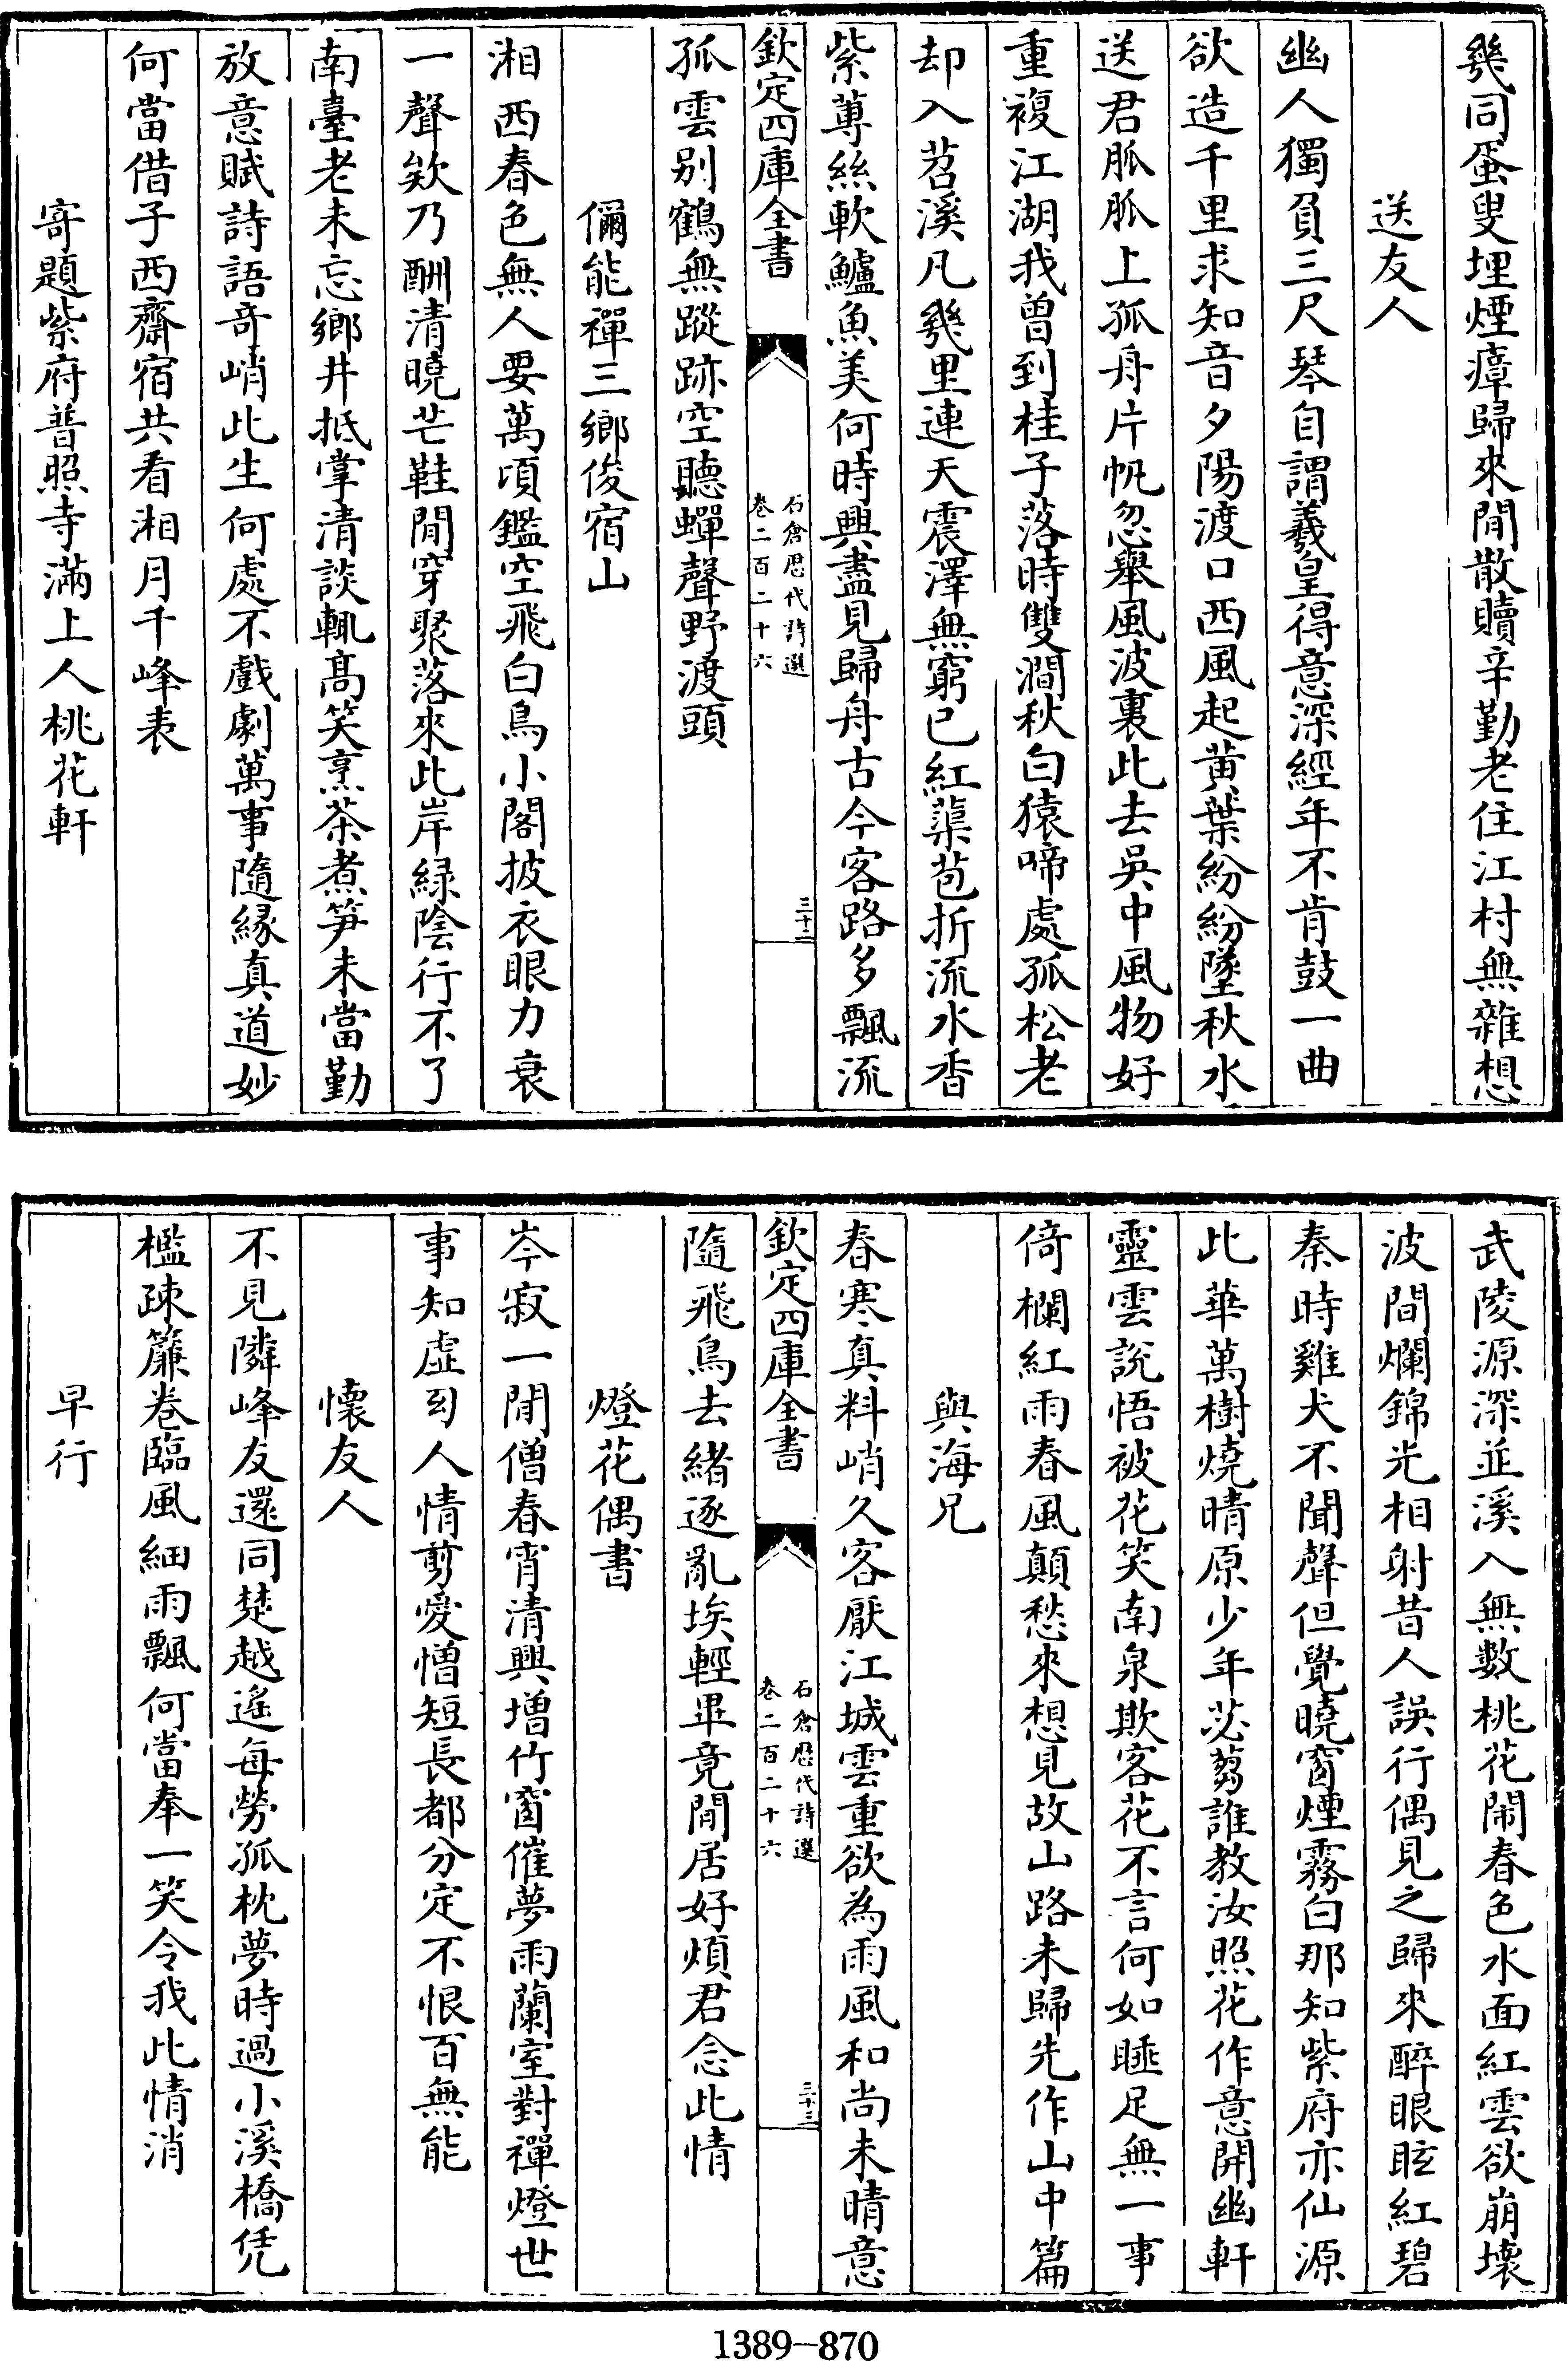 幾同蛋叟埋煙瘴歸來閒散贖辛勤老住江村無雜想
送友人
幽人獨負三尺琴自謂羲皇得意深經年不肯鼓一曲
欲造千里求知音夕陽渡口西風起黄葉紛紛墜秋水
送君脈脈上孤舟片帆忽舉風波裏此去吳中風物好
重複江湖我曾到桂子落時雙澗秋白猿啼處孤松老
却入苕溪凡幾里連天震澤無窮已紅蕖苞折流水香
紫蓴絲軟鱸魚美何時興盡見歸舟古今客路多飄流
欽定四庫全書
石倉歴代詩選
卷二百二十六
三十二
孤雲别鶴無蹤跡空聽蟬聲野渡頭
儞能禪三鄉俊宿山
湘西春色無人要萬頃鑑空飛白鳥小閣披衣眼力衰
一聲欸乃酬清曉芒鞋閒穿聚落來此岸緑陰行不了
南臺老未忘鄉井抵掌清談輒髙笑烹茶煮笋未當勤
放意賦詩語奇峭此生何處不戲劇萬事隨緣真道妙
何當借子西齋宿共看湘月千峰表
寄題紫府普照寺滿上人桃花軒
武陵源深並溪入無數桃花鬧春色水面紅雲欲崩壞
波間爛錦光相射昔人誤行偶見之歸來醉眼眩紅碧
秦時雞犬不聞聲但覺曉窗煙霧白那知紫府亦仙源
此華萬樹燒晴原少年苾蒭誰教汝照花作意開幽軒
靈雲說悟被花笑南泉欺客花不言何如睡足無一事
倚欄紅雨春風顛愁來想見故山路未歸先作山中篇
與海兄
春寒真料峭久客厭江城雲重欲為雨風和尚未晴意
欽定四庫全書
石倉歴代詩選
卷二百二十六
三十三
隨飛鳥去緒逐亂埃輕畢竟閒居好煩君念此情
燈花偶書
岑寂一閒僧春宵清興增竹窗催夢雨蘭室對禪燈世
事知虛幻人情剪愛憎短長都分定不恨百無能
懷友人
不見隣峰友還同楚越遙每勞孤枕夢時過小溪橋凭
檻疎簾卷臨風細雨飄何當奉一笑令我此情消
早行
1389-870